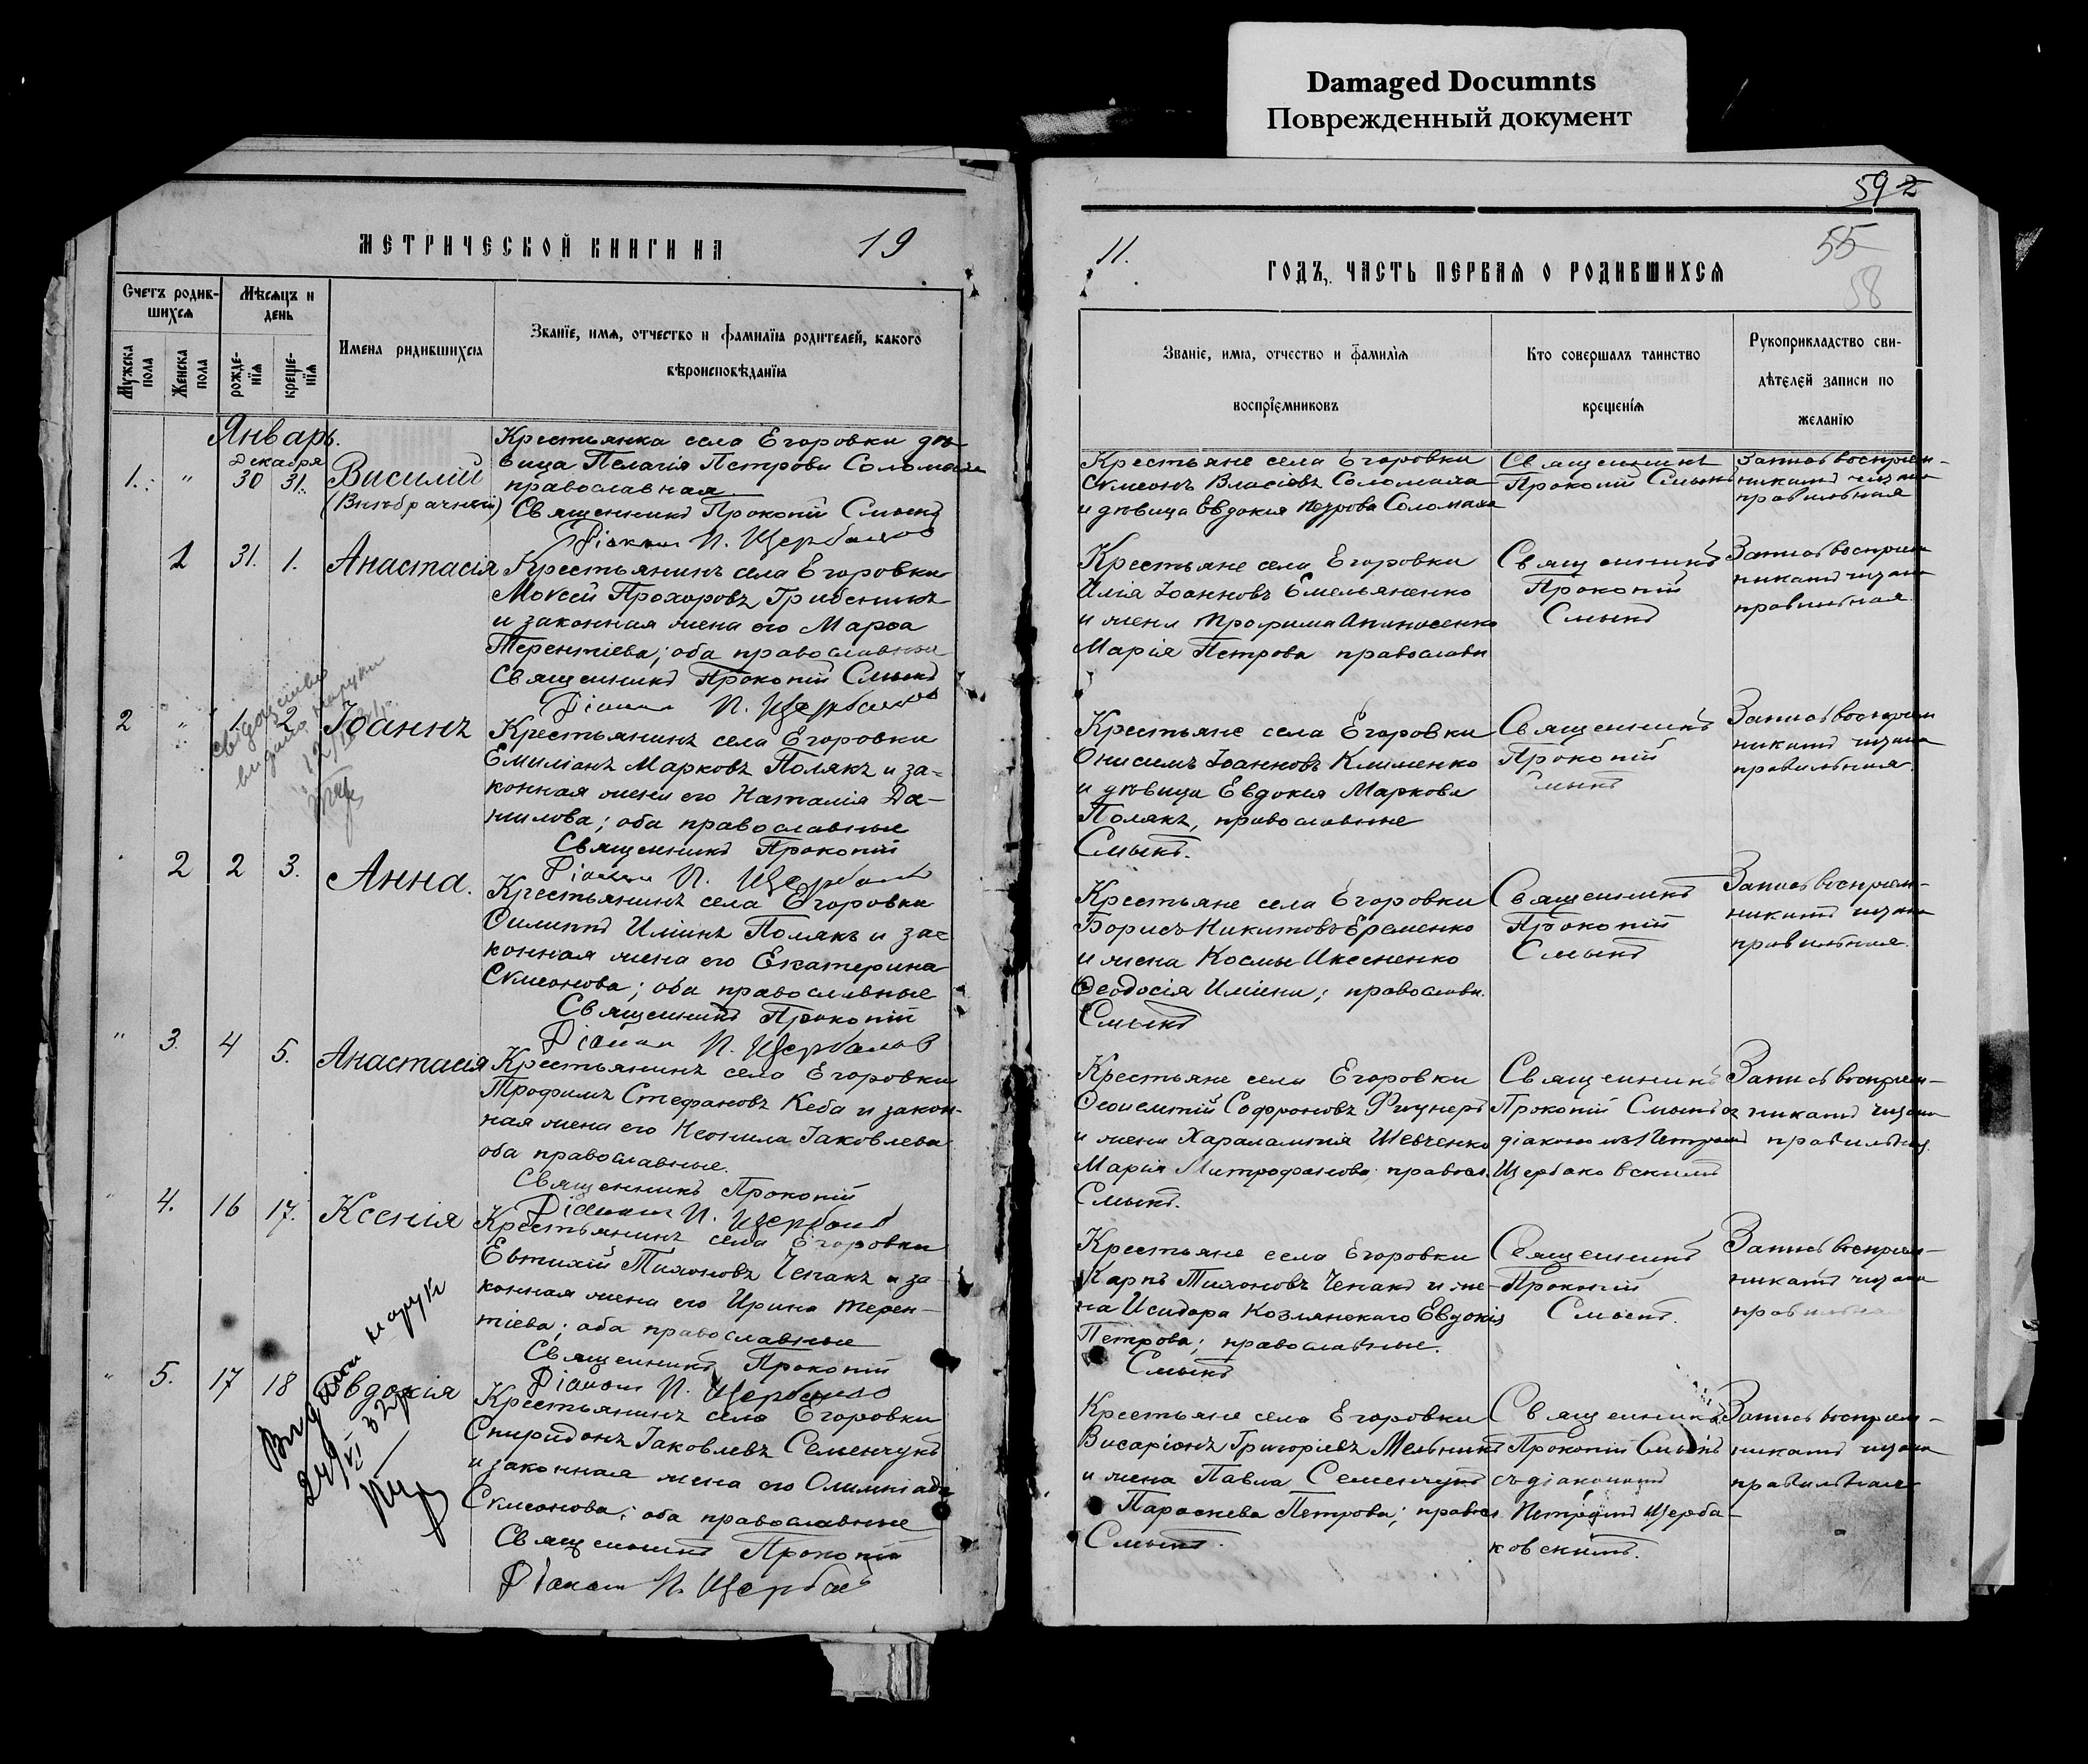 Damaged Documnts
Поврежденный документ
59 2
МЕТРИЧЕСКОЙ КНИГИ НА 19
Счетъ родив-
шихся
Мѣсяцъ и
день
Мужска
пола
Женска
пола
рожде-
нія
креще-
нія
Имена родившихсıа
Званіе, имя, отчество и фамиліıа родителей, какого
вѣроисповѣданіıа
Январь.
Декабря
1. " 30 31. Василій
(Внѣбрачный)
Крестьянка села Егоровки дѣ-
вица Пелагія Петрова Соломаха
православная.
Священникъ Прокопій Смыкъ
Діаконъ П. Щербаковъ
1 31. 1. Анастасія
Крестьянинъ села Егоровки
Моѵсей Прохоровъ Грибенникъ
и законная жена его Марѳа
Терентіева; оба православные
Священникъ Прокопій Смыкъ
Діаконъ П. Щербаковъ
2 " 1. 2 Іоаннъ
видано на руки
Крестьянинъ села Егоровки
Емиліанъ Марковъ Полякъ и за-
конная жена его Наталія Да-
нилова; оба православные
Священникъ Прокопій
Діаконъ П. Щербаковъ
2 2 3. Анна.
Крестьянинъ села Егоровки
Филиппъ Иліинъ Полякъ и за-
конная жена его Екатерина
Сѵмеонова; оба православные
Священникъ Прокопій
Діаконъ П. Щербаковъ
" 3. 4 5. Анастасія
Крестьянинъ села Егоровки
Трофимъ Стефановъ Кеба и закон-
ная жена его Неонила Іаковлева
оба православные.
Священникъ Прокопій
Діаконъ П. Щербаковъ
" 4. 16 17. Ксенія
Крестьянинъ села Егоровки
Евтихій Тихоновъ Чепакъ и за-
конная жена его Ирина Терен-
тіева; оба православные
Священникъ Прокопій
Діаконъ П. Щербаковъ
" 5. 17 18 Евдокія
на руки
Крестьянинъ села Егоровки
Спиридонъ Іаковлевъ Семенчукъ
и законная жена его Олимпіада
Сѵмеонова; оба православные
Священникъ Прокопій
Діаконъ П. Щербаковъ
11.
55
58
ГОДЪ, ЧАСТЬ ПЕРВАЯ О РОДИВШИХСЯ
Званіе, имıа, отчество и фамилія
воспріемниковъ
Кто совершалъ таинство
крещенія
Рукоприкладство сви-
дѣтелей записи по
желанію
Крестьяне села Егоровки
Сѵмеонъ Власіевъ Соломаха
и дѣвица Евдокія Петрова Соломаха
Священникъ
Прокопій Смыкъ
Запись воспріем-
никамъ читана
правильная
Крестьяне села Егоровки
Илія Іоанновъ Емельяненко
и жена Трофима Апанасенко
Марія Петрова православн
Священникъ
Прокопій
Смыкъ
Запись воспріем
никамъ читана
правильная.
Крестьяне села Егоровки
Онисимъ Іоанновъ Клименко
и дѣвица Евдокія Маркова
Полякъ, православные
Смыкъ.
Священникъ
Прокопій
Смыкъ
Запись воспріем
никамъ читана
правильная.
Крестьяне села Егоровки
Борисъ Никитовъ Еременко
и жена Космы
Ѳеодосія Иліина; православн.
Смыкъ
Священникъ
Прокопій
Смыкъ
Запись воспріем-
никамъ читана
правильная.
Крестьяне села Егоровки
Софроновъ
и жена Харалампія Шевченко
Марія Митрофанова; правосл.
Смыкъ.
Священникъ
Прокопій Смыкъ съ
діакономъ Петромъ
Щербаковскимъ
Запись воспріем-
никамъ читана
правильная.
Крестьяне села Егоровки
Карпъ Тихоновъ Чепакъ и же-
на Исидора Козлянскаго Евдокія
Петрова; православные.
Смыкъ
Священникъ
Прокопій
Смыкъ.
Запись воспріем-
никамъ читана
правильная
Крестьяне села Егоровки
Висаріонъ Григоріевъ Мельникъ
и жена Павла Семенчука
Параскева Петрова; правосл.
Смыкъ.
Священникъ
Прокопій Смыкъ
съ діакономъ
Петромъ Щерба-
ковскимъ.
Запись воспріем-
никамъ читана
правильная